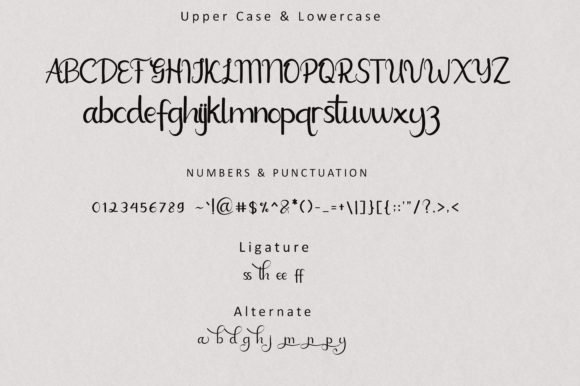 Upper Case & Lowercase
ABCDEFGHIJKLMNOPQRSTUVWXYZ
abcdefghijklmnopqrstuvwxyz
NUMBERS & PUNCTUATION
0123456789 ~`!@#$%^&*()-_=+\|]}[{;:'"/?.>,<
Ligature
ss th ee ff
Alternate
a b d g h j m n p y